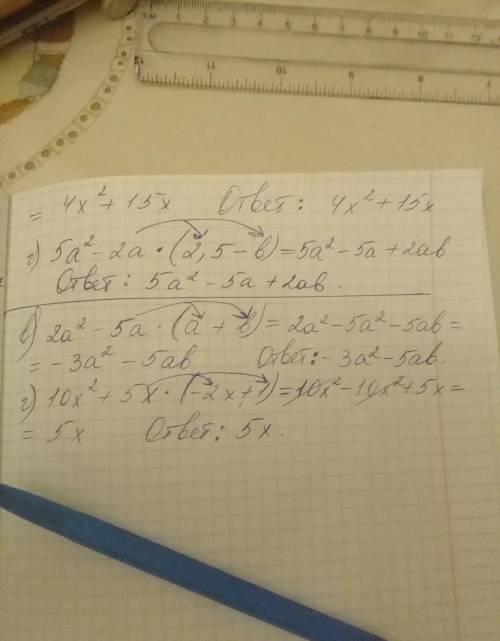 см 1 2 3 4 5 6 7 8 9 10 11 12
11 10 9 8 7 6
= 4x² + 15x Ответ: 4x² + 15x
г) 5a² - 2a · (2,5 - b) = 5a² - 5a + 2ab
Ответ: 5a² - 5a + 2ab.
в) 2a² - 5a · (a + b) = 2a² - 5a² - 5ab =
= -3a² - 5ab Ответ: -3a² - 5ab.
г) 10x² + 5x · (-2x + 1) = 10x² - 10x² + 5x =
= 5x Ответ: 5x.